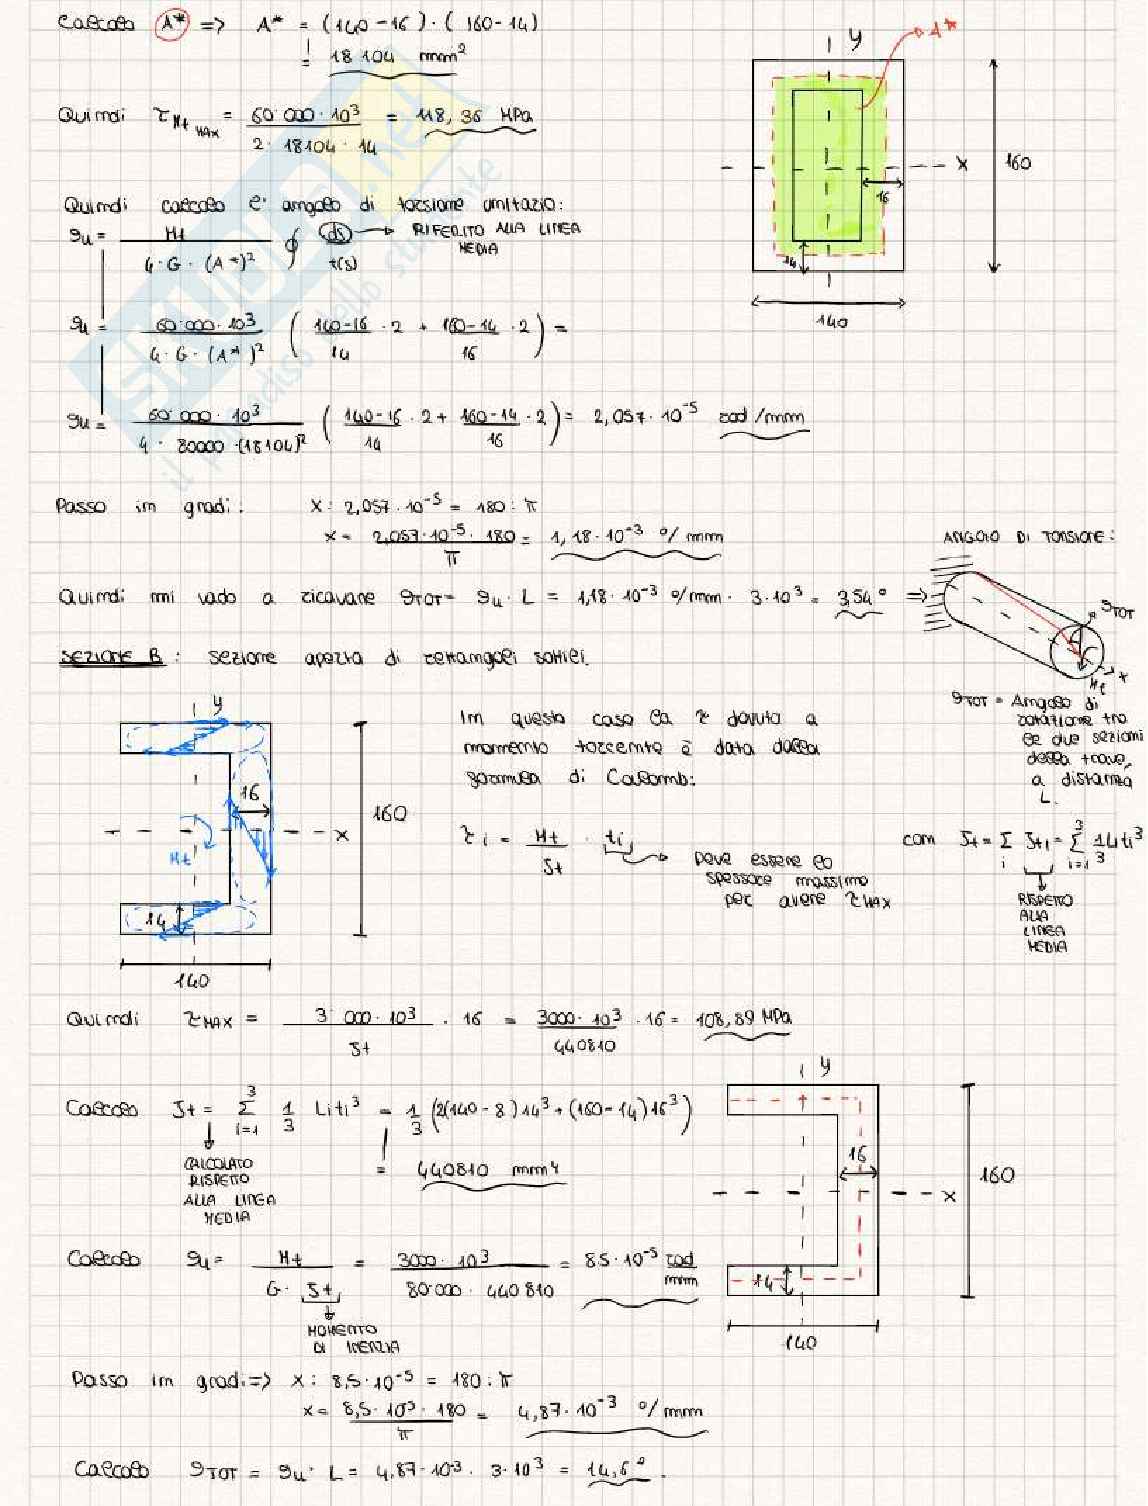 Calcolo A* => A* = (140-16)·(160-14)
= 18 104 mm²
y
A*
Quindi τMt MAX = 60'000·10³ / 2·18104·14 = 118,36 MPa
x
160
16
14
140
Quindi calcolo l'angolo di torsione unitario:
ϑu = Mt / 4·G·(A*)² ∮ ds / t(s) → RIFERITO ALLA LINEA MEDIA
ϑu = 60'000·10³ / 4·G·(A*)² ( 140-16 / 14 · 2 + 160-14 / 16 · 2 ) =
ϑu = 60'000·10³ / 4·80000·(18104)² ( 140-16 / 14 · 2 + 160-14 / 16 · 2 ) = 2,057·10⁻⁵ rad/mm
Passo in gradi: x : 2,057·10⁻⁵ = 180 : π
x = 2,057·10⁻⁵·180 / π = 1,18·10⁻³ °/mm
ANGOLO DI TORSIONE:
Quindi mi vado a ricavare ϑTOT = ϑu · L = 1,18·10⁻³ °/mm · 3·10³ = 3,54° =>
ϑTOT
Mt
x
SEZIONE B: sezione aperta di rettangoli sottili.
ϑTOT = Angolo di
rotazione tra
le due sezioni
della trave,
a distanza
L.
y
16
x
160
Mt
14
140
In questo caso la τ dovuta a
momento torcente è data dalla
formula di Coulomb:
τi = Mt / Jt · ti → deve essere lo
spessore massimo
per avere τMAX
con Jt = Σi Jti = Σ³i=1 1/3 Li ti³
RISPETTO
ALLA
LINEA
MEDIA
Quindi τMAX = 3'000·10³ / Jt · 16 = 3000·10³ / 440810 · 16 = 108,89 MPa
Calcolo Jt = Σ³i=1 1/3 Li ti³ = 1/3 (2(140-8)14³ + (160-14)16³)
= 440810 mm⁴
CALCOLATO
RISPETTO
ALLA LINEA
MEDIA
y
16
160
x
14
140
Calcolo ϑu = Mt / G·Jt = 3000·10³ / 80'000·440810 = 8.5·10⁻⁵ rad/mm
MOMENTO
DI INERZIA
Passo in gradi => x : 8,5·10⁻⁵ = 180 : π
x = 8,5·10⁵·180 / π = 4,87·10⁻³ °/mm
Calcolo ϑTOT = ϑu · L = 4,87·10⁻³ · 3·10³ = 14,6°.